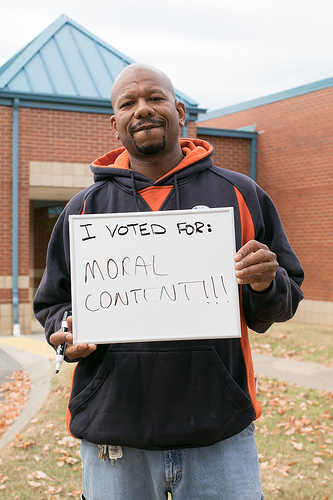 I VOTED FOR:
MORAL
CONTENT!!!